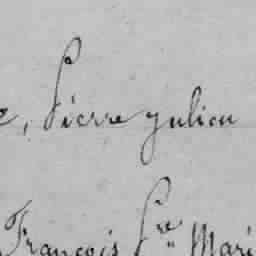 , Pierre Julien
François P.re Mari